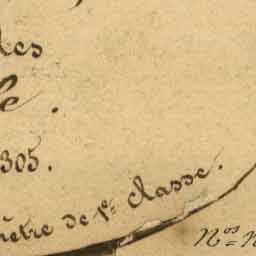 des
le.
305.
mètre de 1re classe.
Nos = N